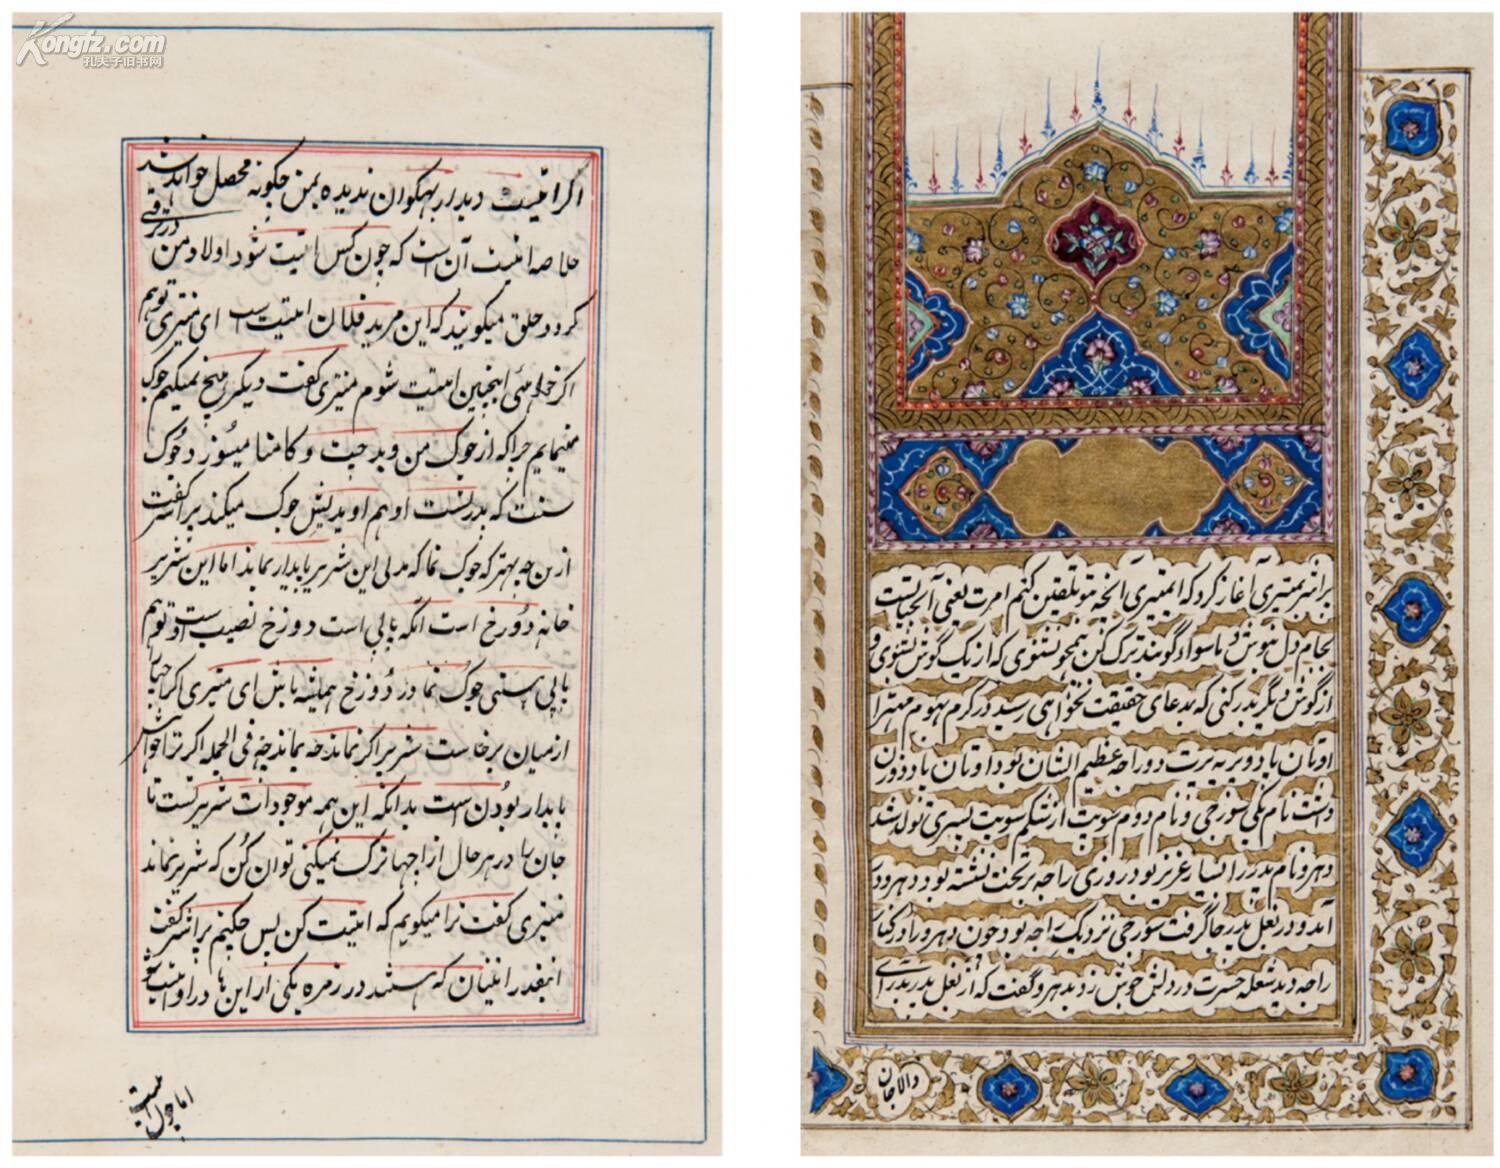 Kongfz.com
孔夫子旧书网
اکر اتیت دیدار بهکوان ندیده بمن چکونه محصل خواند شد
خلاصه اتیت آن است که چون کس اتیت شود اولاد من
کردد خلق میکویند که این مرید فلان اتیت است ای میتری تو هم
اکر خواهی اینچنین اتیت شوم میتری کفت دیکر هیچ نمیکیم جوک
مینمایم چراکه از جوک من و بد جیت و کامنا میسوزد و جوک
سنت که بدرنست او هم او بدنیش جوک میکند پراشر کفت
ازین چه بهتر که جوک نما که بدلی این شریر پایدار نماند اما این شریر
خانه دوزخ است آنکه پاپی است دوزخ نصیب است او تو هم
پاپی هستی جوک نما در دوزخ همیشه باش ای میتری اکر
از میان برخاست شریر اکر نماند چه بماند چه فی الجمله اکر ترا خواهش
پایدار بودن است بدانکه این همه موجودات شریر نیست تا
جان ها در هر حال از اجها ترک نمیکنی توان کن که شریر نماند
میتری کفت ترا میکویم که اتیت کن پس چکنیم پراشر کفت
اینقدر اتیتان که هستند در زمره یکی از این ها در او اتیت شو
اما چون اتیت
پراشر بمیتری آغاز کرد که ای میتری آنچه بتو تلقین کنم امرت یعنی آبحیاتست
بجام دل بنوش و ماسوا و کویند ترک کن همچو نشنوی که از یک کوش بشنوی و
از کوش دیگر بدر کنی که بدعای حقیقت نخواهی رسید در کرم بهوم مهترا
اوتان پاد و پریه برت دو راجه عظیم الشان بود اوتان پاد دو زن
داشت نام یکی سورجی و نام دوم سونیت از شکم سونیت پسری تولد شد
دهرو نام پدر را بسیار عزیز بود روزی راجه بر تخت نشسته بود دهرو در
آمد و در بغل پدر جا گرفت سورجی نزدیک راجه بود چون دهرو را در کنار
راجه دید شعله حسرت در دلش جوش زد بدهرو گفت که از بغل پدر بدر آی
والا جان